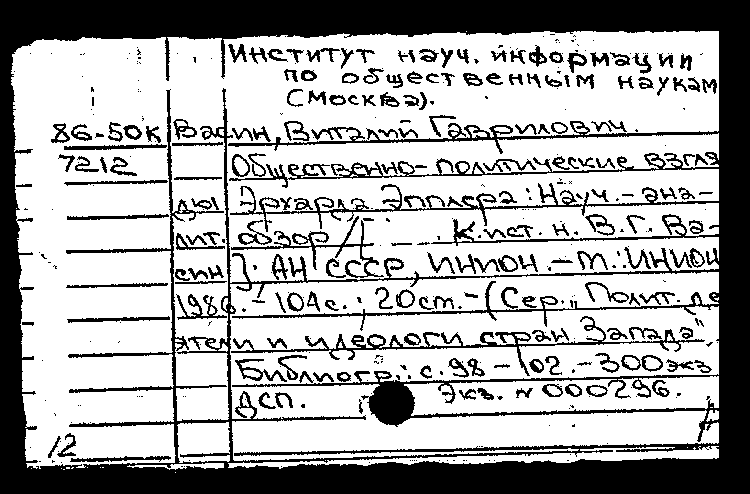 Институт науч. информации
по общественным наукам
(Москва).
86-50к Васин, Виталий Гаврилович.
7212 Общественно-политические взгля
ды Эрхарда Эпплера : Науч.-ана-
лит. обзор / [ К.ист. н. В.Г. Ва-
син]; АН СССР, ИНИОН. - М. : ИНИОН
1986. - 104с. ; 20см. - (Сер. „Полит. де
ятели и идеологи стран Запада"
Библиогр.: с. 98 - 102. - 300экз
ДСП. Экз. N 000296.
12